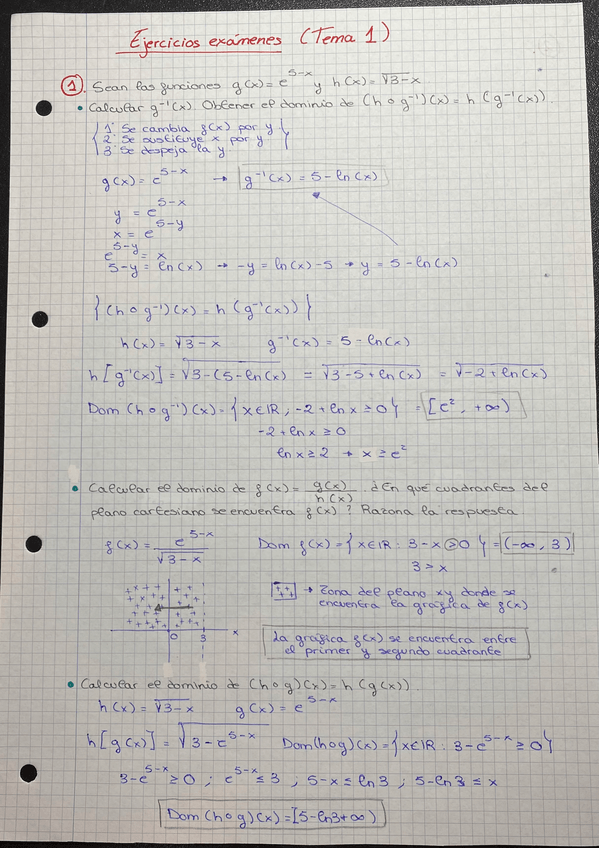 Ejercicios exámenes (Tema 1)
1. Sean las funciones g(x) = e^5-x y h(x) = √3-x
• Calcular g⁻¹(x). Obtener el dominio de (h o g⁻¹)(x) = h(g⁻¹(x)).
{ 1º Se cambia g(x) por y
2º Se sustituye x por y
3º Se despeja la y }
g(x) = e^5-x → g⁻¹(x) = 5 - ln(x)
y = e^5-x
x = e^5-y
e^5-y = x
5-y = ln(x) → -y = ln(x) - 5 → y = 5 - ln(x)
{ (h o g⁻¹)(x) = h(g⁻¹(x)) }
h(x) = √3-x g⁻¹(x) = 5 - ln(x)
h[g⁻¹(x)] = √3-(5-ln(x)) = √3-5+ln(x) = √-2+ln(x)
Dom (h o g⁻¹)(x) = { x∈ℝ ; -2 + ln x ≥ 0 } = [e², +∞)
-2 + ln x ≥ 0
ln x ≥ 2 → x ≥ e²
• Calcular el dominio de f(x) = g(x)/h(x). ¿En qué cuadrantes del
plano cartesiano se encuentra f(x)? Razona la respuesta
f(x) = e^5-x/√3-x Dom f(x) = { x∈ℝ : 3-x > 0 } = (-∞, 3)
3 > x
→ Zona del plano xy donde se
encuentra la gráfica de f(x)
0 3 x
La gráfica f(x) se encuentra entre
el primer y segundo cuadrante
• Calcular el dominio de (h o g)(x) = h(g(x)).
h(x) = √3-x g(x) = e^5-x
h[g(x)] = √3-e^5-x Dom(hog)(x) = { x∈ℝ : 3-e^5-x ≥ 0 }
3-e^5-x ≥ 0 ; e^5-x ≤ 3 ; 5-x ≤ ln3 ; 5-ln3 ≤ x
Dom (h o g)(x) = [5-ln3+∞)